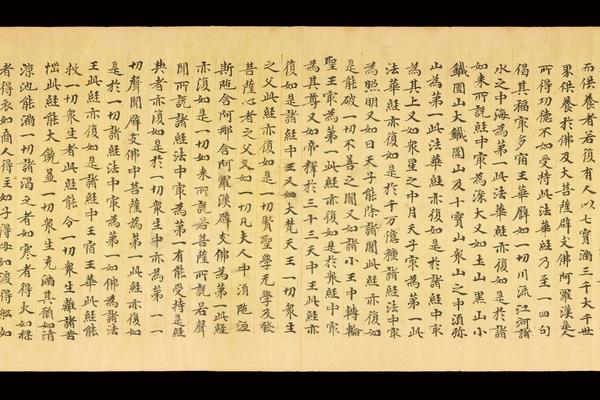 而供養者若復有人以七寶滿三千大千世
界供養於佛及大菩薩辟支佛阿羅漢是
所得功德不如受持此法華經乃至一四句
偈其福㝡多宿王華辟如一切川流江河諸
水之中海為第一此法華經亦復如是於諸
如来所說經中㝡為深大又如土山黑山小
鐵圍山大鐵圍山及十寶山衆山之中須弥
山為第一此法華經亦復如是於諸經中㝡
為其上又如衆星之中月天子㝡為第一此
法華經亦復如是於千万億種諸經法中㝡
為照明又如日天子能除諸闇此經亦復如
是能破一切不善之闇又如諸小王中轉輪
聖王㝡為第一此經亦復如是於衆經中㝡
為其尊又如帝釋於三十三天中王此經亦
復如是諸經中王又如大梵天王一切衆生
之父此經亦復如是一切賢聖學无學及發
菩薩心者之父又如一切凡夫人中須陁洹
斯陁含阿那含阿羅漢辟支佛為第一此經
亦復如是一切如来所說若菩薩所說若聲
聞所說諸經法中㝡為第一有能受持是經
典者亦復如是於一切衆生中亦為第一一
切聲聞辟支佛中菩薩為第一此經亦復如
是於一切諸經法中㝡為第一如佛為諸法
王此經亦復如是諸經中王宿王華此經能
救一切衆生者此經能令一切衆生離諸苦
惱此經能大饒益一切衆生充滿其願如清
涼池能滿一切諸渴乏者如寒者得火如裸
者得衣如商人得主如子得母如渡得船如